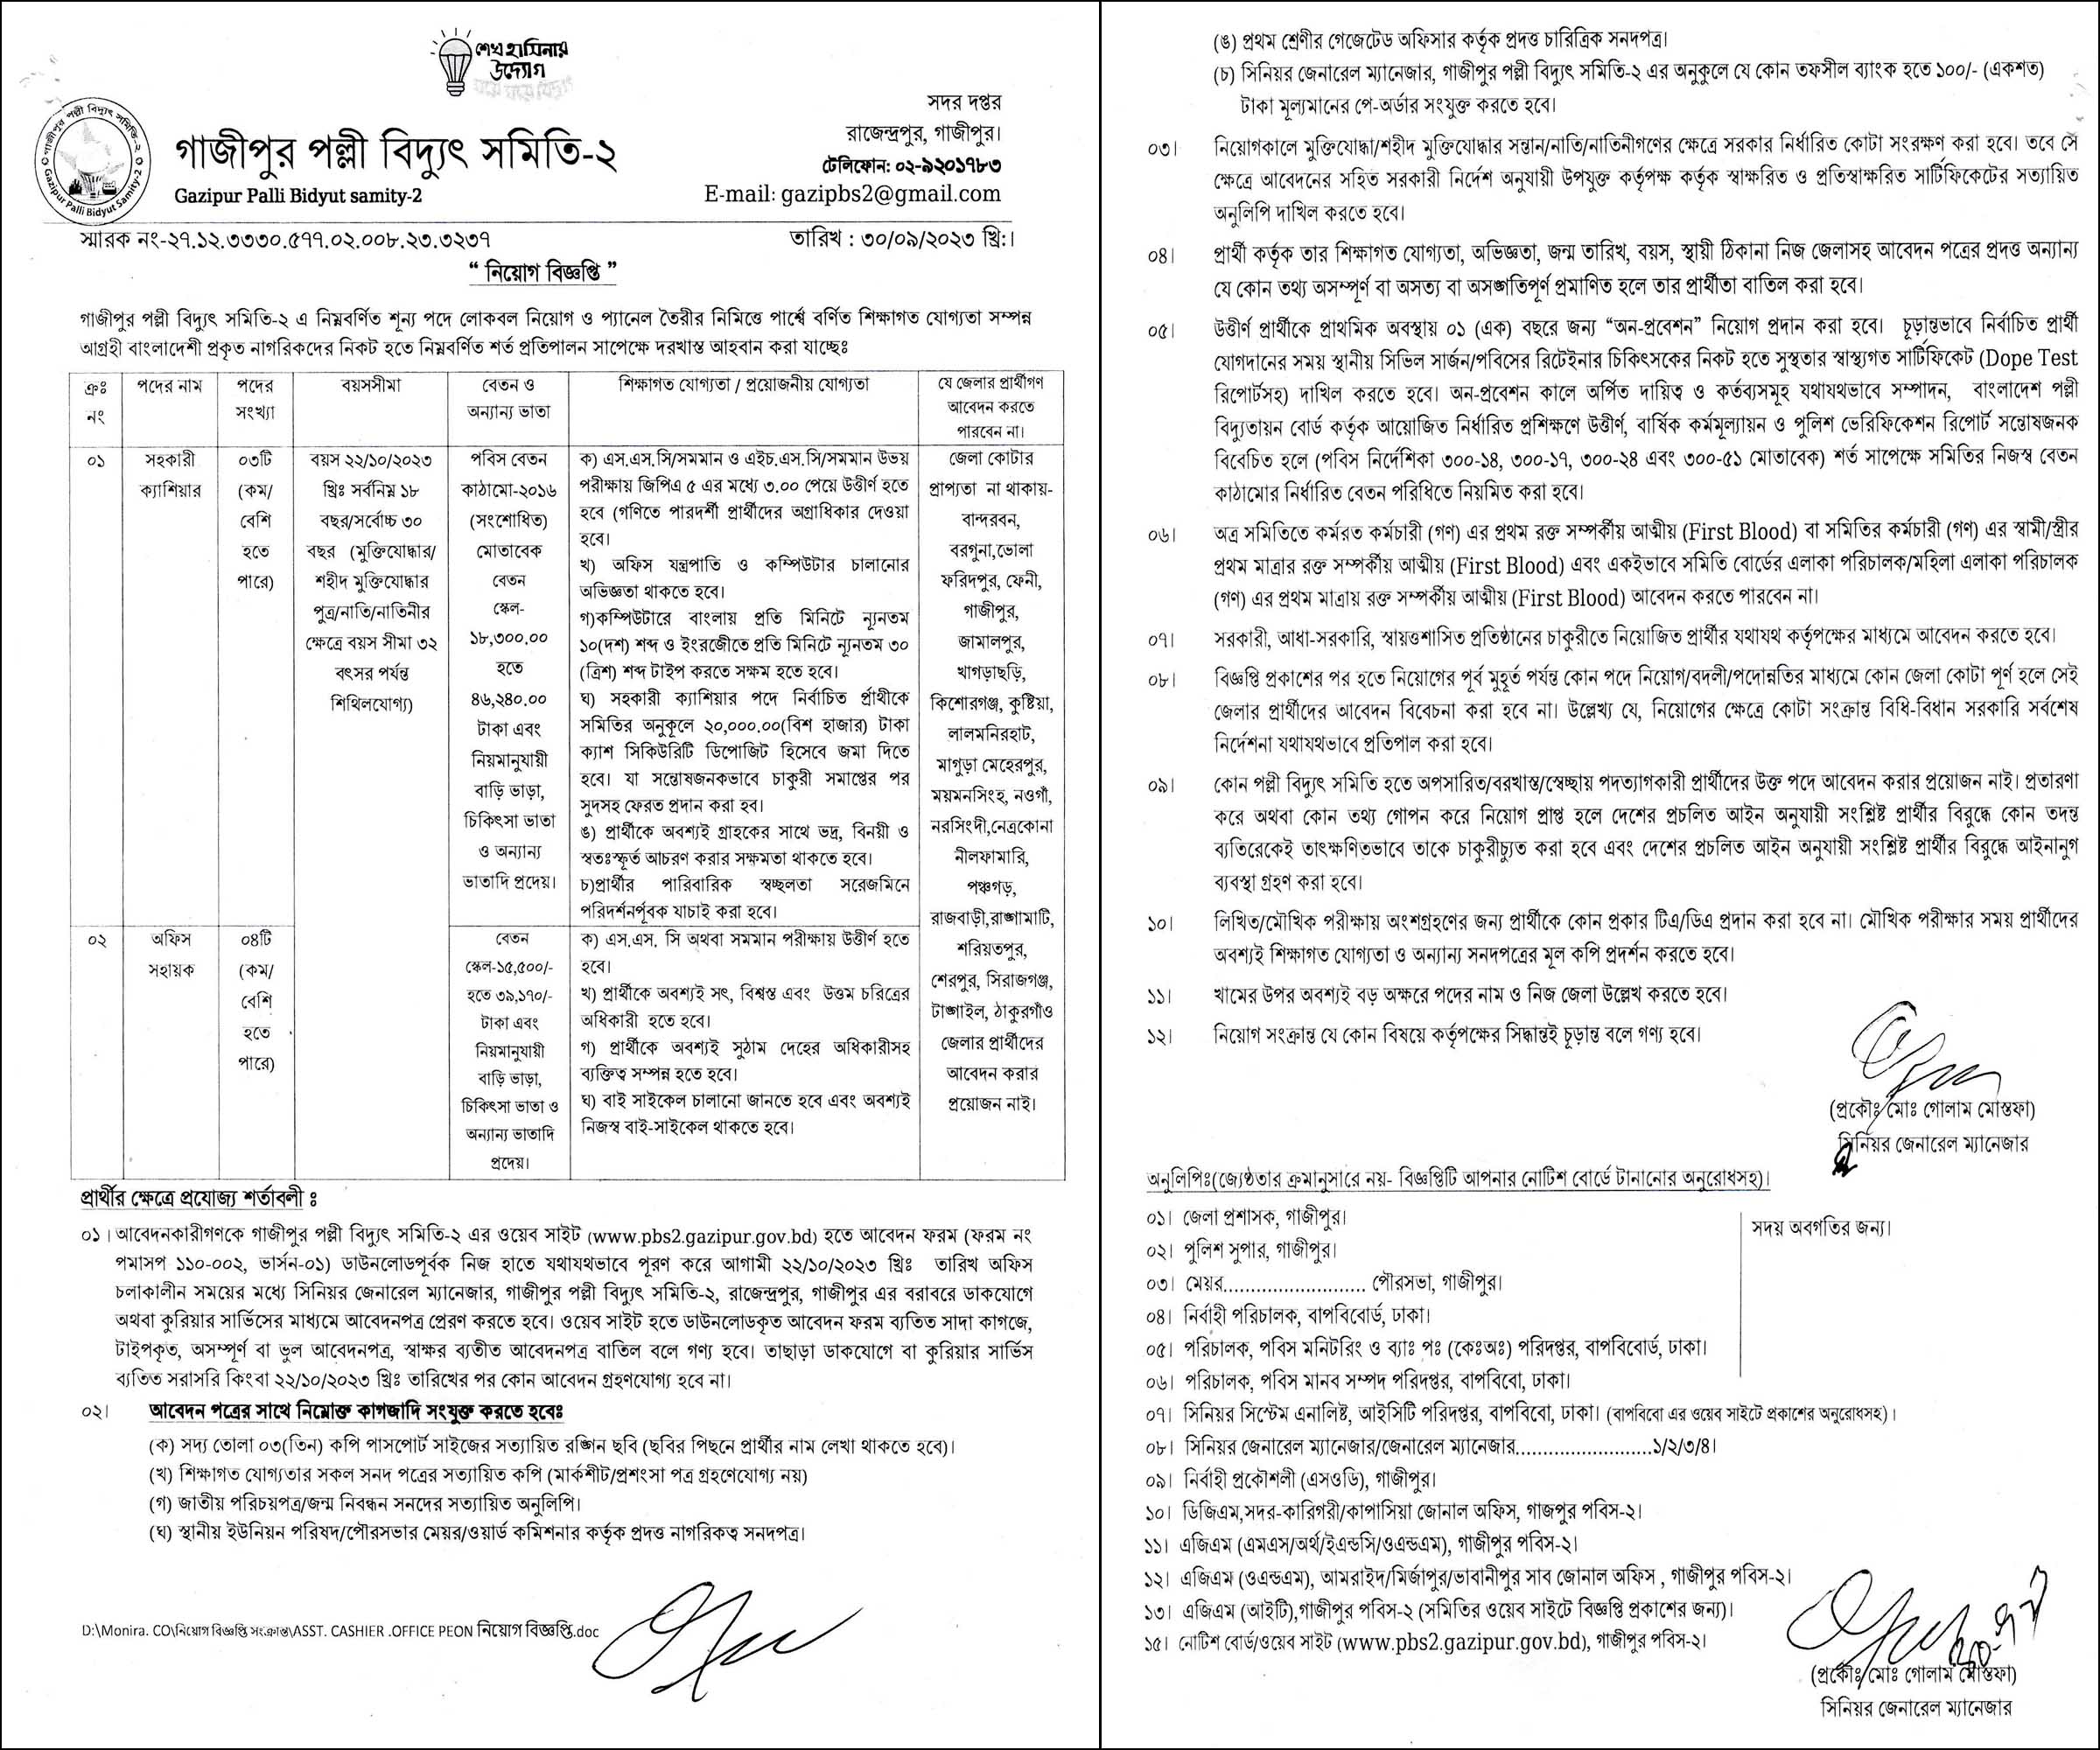 শেখ হাসিনার
উদ্যোগ
গাজীপুর পল্লী বিদ্যুৎ সমিতি-২
Gazipur Palli Bidyut samity-2
সদর দপ্তর
রাজেন্দ্রপুর, গাজীপুর।
টেলিফোন: ০২-৯২০১৭৮৩
E-mail: gazipbs2@gmail.com
স্মারক নং-২৭.১২.৩৩৩০.৫৭৭.০২.০০৮.২৩.৩২৩৭
তারিখ : ৩০/০৯/২০২৩ খ্রি:।
“ নিয়োগ বিজ্ঞপ্তি ”
গাজীপুর পল্লী বিদ্যুৎ সমিতি-২ এ নিম্নবর্ণিত শূন্য পদে লোকবল নিয়োগ ও প্যানেল তৈরীর নিমিত্তে পার্শ্বে বর্ণিত শিক্ষাগত যোগ্যতা সম্পন্ন
আগ্রহী বাংলাদেশী প্রকৃত নাগরিকদের নিকট হতে নিম্নবর্ণিত শর্ত প্রতিপালন সাপেক্ষে দরখাস্ত আহবান করা যাচ্ছেঃ
ক্রঃ
নং
পদের নাম
পদের
সংখ্যা
বয়সসীমা
বেতন ও
অন্যান্য ভাতা
শিক্ষাগত যোগ্যতা / প্রয়োজনীয় যোগ্যতা
যে জেলার প্রার্থীগণ
আবেদন করতে
পারবেন না।
০১
সহকারী
ক্যাশিয়ার
০৩টি
(কম/
বেশি
হতে
পারে)
বয়স ২২/১০/২০২৩
খ্রিঃ সর্বনিম্ন ১৮
বছর/সর্বোচ্চ ৩০
বছর (মুক্তিযোদ্ধার/
শহীদ মুক্তিযোদ্ধার
পুত্র/নাতি/নাতিনীর
ক্ষেত্রে বয়স সীমা ৩২
বৎসর পর্যন্ত
শিথিলযোগ্য)
পবিস বেতন
কাঠামো-২০১৬
(সংশোধিত)
মোতাবেক
বেতন
স্কেল-
১৮,৩০০.০০
হতে
৪৬,২৪০.০০
টাকা এবং
নিয়মানুযায়ী
বাড়ি ভাড়া,
চিকিৎসা ভাতা
ও অন্যান্য
ভাতাদি প্রদেয়।
ক) এস.এস.সি/সমমান ও এইচ.এস.সি/সমমান উভয়
পরীক্ষায় জিপিএ ৫ এর মধ্যে ৩.০০ পেয়ে উত্তীর্ণ হতে
হবে (গণিতে পারদর্শী প্রার্থীদের অগ্রাধিকার দেওয়া
হবে।
খ) অফিস যন্ত্রপাতি ও কম্পিউটার চালানোর
অভিজ্ঞতা থাকতে হবে।
গ)কম্পিউটারে বাংলায় প্রতি মিনিটে ন্যূনতম
১০(দশ) শব্দ ও ইংরেজীতে প্রতি মিনিটে ন্যূনতম ৩০
(ত্রিশ) শব্দ টাইপ করতে সক্ষম হতে হবে।
ঘ) সহকারী ক্যাশিয়ার পদে নির্বাচিত প্রার্থীকে
সমিতির অনুকূলে ২০,০০০.০০(বিশ হাজার) টাকা
ক্যাশ সিকিউরিটি ডিপোজিট হিসেবে জমা দিতে
হবে। যা সন্তোষজনকভাবে চাকুরী সমাপ্তের পর
সুদসহ ফেরত প্রদান করা হব।
ঙ) প্রার্থীকে অবশ্যই গ্রাহকের সাথে ভদ্র, বিনয়ী ও
স্বতঃস্ফূর্ত আচরণ করার সক্ষমতা থাকতে হবে।
চ)প্রার্থীর পারিবারিক স্বচ্ছলতা সরেজমিনে
পরিদর্শনপূর্বক যাচাই করা হবে।
জেলা কোটার
প্রাপ্যতা না থাকায়-
বান্দরবন,
বরগুনা,ভোলা
ফরিদপুর, ফেনী,
গাজীপুর,
জামালপুর,
খাগড়াছড়ি,
কিশোরগঞ্জ, কুষ্টিয়া,
লালমনিরহাট,
মাগুড়া মেহেরপুর,
ময়মনসিংহ, নওগাঁ,
নরসিংদী,নেত্রকোনা
নীলফামারি,
পঞ্চগড়,
রাজবাড়ী,রাঙ্গামাটি,
শরিয়তপুর,
শেরপুর, সিরাজগঞ্জ,
টাঙ্গাইল, ঠাকুরগাঁও
জেলার প্রার্থীদের
আবেদন করার
প্রয়োজন নাই।
০২
অফিস
সহায়ক
০৪টি
(কম/
বেশি
হতে
পারে)
বেতন
স্কেল-১৫,৫০০/-
হতে ৩৯,১৭০/-
টাকা এবং
নিয়মানুযায়ী
বাড়ি ভাড়া,
চিকিৎসা ভাতা ও
অন্যান্য ভাতাদি
প্রদেয়।
ক) এস.এস. সি অথবা সমমান পরীক্ষায় উত্তীর্ণ হতে
হবে।
খ) প্রার্থীকে অবশ্যই সৎ, বিশ্বস্ত এবং উত্তম চরিত্রের
অধিকারী হতে হবে।
গ) প্রার্থীকে অবশ্যই সুঠাম দেহের অধিকারীসহ
ব্যক্তিত্ব সম্পন্ন হতে হবে।
ঘ) বাই সাইকেল চালানো জানতে হবে এবং অবশ্যই
নিজস্ব বাই-সাইকেল থাকতে হবে।
প্রার্থীর ক্ষেত্রে প্রযোজ্য শর্তাবলী ঃ
০১। আবেদনকারীগণকে গাজীপুর পল্লী বিদ্যুৎ সমিতি-২ এর ওয়েব সাইট (www.pbs2.gazipur.gov.bd) হতে আবেদন ফরম (ফরম নং
পমাসপ ১১০-০০২, ভার্সন-০১) ডাউনলোডপূর্বক নিজ হাতে যথাযথভাবে পূরণ করে আগামী ২২/১০/২০২৩ খ্রিঃ তারিখ অফিস
চলাকালীন সময়ের মধ্যে সিনিয়র জেনারেল ম্যানেজার, গাজীপুর পল্লী বিদ্যুৎ সমিতি-২, রাজেন্দ্রপুর, গাজীপুর এর বরাবরে ডাকযোগে
অথবা কুরিয়ার সার্ভিসের মাধ্যমে আবেদনপত্র প্রেরণ করতে হবে। ওয়েব সাইট হতে ডাউনলোডকৃত আবেদন ফরম ব্যতিত সাদা কাগজে,
টাইপকৃত, অসম্পূর্ণ বা ভুল আবেদনপত্র, স্বাক্ষর ব্যতীত আবেদনপত্র বাতিল বলে গণ্য হবে। তাছাড়া ডাকযোগে বা কুরিয়ার সার্ভিস
ব্যতিত সরাসরি কিংবা ২২/১০/২০২৩ খ্রিঃ তারিখের পর কোন আবেদন গ্রহণযোগ্য হবে না।
০২। আবেদন পত্রের সাথে নিম্নোক্ত কাগজাদি সংযুক্ত করতে হবেঃ
(ক) সদ্য তোলা ০৩(তিন) কপি পাসপোর্ট সাইজের সত্যায়িত রঙ্গিন ছবি (ছবির পিছনে প্রার্থীর নাম লেখা থাকতে হবে)।
(খ) শিক্ষাগত যোগ্যতার সকল সনদ পত্রের সত্যায়িত কপি (মার্কশীট/প্রশংসা পত্র গ্রহণেযোগ্য নয়)
(গ) জাতীয় পরিচয়পত্র/জন্ম নিবন্ধন সনদের সত্যায়িত অনুলিপি।
(ঘ) স্থানীয় ইউনিয়ন পরিষদ/পৌরসভার মেয়র/ওয়ার্ড কমিশনার কর্তৃক প্রদত্ত নাগরিকত্ব সনদপত্র।
D:\Monira. CO\নিয়োগ বিজ্ঞপ্তি সংক্রান্ত\ASST. CASHIER .OFFICE PEON নিয়োগ বিজ্ঞপ্তি.doc
(ঙ) প্রথম শ্রেণীর গেজেটেড অফিসার কর্তৃক প্রদত্ত চারিত্রিক সনদপত্র।
(চ) সিনিয়র জেনারেল ম্যানেজার, গাজীপুর পল্লী বিদ্যুৎ সমিতি-২ এর অনুকুলে যে কোন তফসীল ব্যাংক হতে ১০০/- (একশত)
টাকা মূল্যমানের পে-অর্ডার সংযুক্ত করতে হবে।
০৩। নিয়োগকালে মুক্তিযোদ্ধা/শহীদ মুক্তিযোদ্ধার সন্তান/নাতি/নাতিনীগণের ক্ষেত্রে সরকার নির্ধারিত কোটা সংরক্ষণ করা হবে। তবে সে
ক্ষেত্রে আবেদনের সহিত সরকারী নির্দেশ অনুযায়ী উপযুক্ত কর্তৃপক্ষ কর্তৃক স্বাক্ষরিত ও প্রতিস্বাক্ষরিত সার্টিফিকেটের সত্যায়িত
অনুলিপি দাখিল করতে হবে।
০৪। প্রার্থী কর্তৃক তার শিক্ষাগত যোগ্যতা, অভিজ্ঞতা, জন্ম তারিখ, বয়স, স্থায়ী ঠিকানা নিজ জেলাসহ আবেদন পত্রের প্রদত্ত অন্যান্য
যে কোন তথ্য অসম্পূর্ণ বা অসত্য বা অসঙ্গতিপূর্ণ প্রমাণিত হলে তার প্রার্থীতা বাতিল করা হবে।
০৫। উত্তীর্ণ প্রার্থীকে প্রাথমিক অবস্থায় ০১ (এক) বছরে জন্য “অন-প্রবেশন” নিয়োগ প্রদান করা হবে। চূড়ান্তভাবে নির্বাচিত প্রার্থী
যোগদানের সময় স্থানীয় সিভিল সার্জন/পবিসের রিটেইনার চিকিৎসকের নিকট হতে সুস্থতার স্বাস্থ্যগত সার্টিফিকেট (Dope Test
রিপোর্টসহ) দাখিল করতে হবে। অন-প্রবেশন কালে অর্পিত দায়িত্ব ও কর্তব্যসমূহ যথাযথভাবে সম্পাদন, বাংলাদেশ পল্লী
বিদ্যুতায়ন বোর্ড কর্তৃক আয়োজিত নির্ধারিত প্রশিক্ষণে উত্তীর্ণ, বার্ষিক কর্মমূল্যায়ন ও পুলিশ ভেরিফিকেশন রিপোর্ট সন্তোষজনক
বিবেচিত হলে (পবিস নির্দেশিকা ৩০০-১৪, ৩০০-১৭, ৩০০-২৪ এবং ৩০০-৫১ মোতাবেক) শর্ত সাপেক্ষে সমিতির নিজস্ব বেতন
কাঠামোর নির্ধারিত বেতন পরিধিতে নিয়মিত করা হবে।
০৬। অত্র সমিতিতে কর্মরত কর্মচারী (গণ) এর প্রথম রক্ত সম্পর্কীয় আত্মীয় (First Blood) বা সমিতির কর্মচারী (গণ) এর স্বামী/স্ত্রীর
প্রথম মাত্রার রক্ত সম্পর্কীয় আত্মীয় (First Blood) এবং একইভাবে সমিতি বোর্ডের এলাকা পরিচালক/মহিলা এলাকা পরিচালক
(গণ) এর প্রথম মাত্রায় রক্ত সম্পর্কীয় আত্মীয় (First Blood) আবেদন করতে পারবেন না।
০৭। সরকারী, আধা-সরকারি, স্বায়ত্তশাসিত প্রতিষ্ঠানের চাকুরীতে নিয়োজিত প্রার্থীর যথাযথ কর্তৃপক্ষের মাধ্যমে আবেদন করতে হবে।
০৮। বিজ্ঞপ্তি প্রকাশের পর হতে নিয়োগের পূর্ব মুহূর্ত পর্যন্ত কোন পদে নিয়োগ/বদলী/পদোন্নতির মাধ্যমে কোন জেলা কোটা পূর্ণ হলে সেই
জেলার প্রার্থীদের আবেদন বিবেচনা করা হবে না। উল্লেখ্য যে, নিয়োগের ক্ষেত্রে কোটা সংক্রান্ত বিধি-বিধান সরকারি সর্বশেষ
নির্দেশনা যথাযথভাবে প্রতিপাল করা হবে।
০৯। কোন পল্লী বিদ্যুৎ সমিতি হতে অপসারিত/বরখাস্ত/স্বেচ্ছায় পদত্যাগকারী প্রার্থীদের উক্ত পদে আবেদন করার প্রয়োজন নাই। প্রতারণা
করে অথবা কোন তথ্য গোপন করে নিয়োগ প্রাপ্ত হলে দেশের প্রচলিত আইন অনুযায়ী সংশ্লিষ্ট প্রার্থীর বিরুদ্ধে কোন তদন্ত
ব্যতিরেকেই তাৎক্ষণিতভাবে তাকে চাকুরীচ্যুত করা হবে এবং দেশের প্রচলিত আইন অনুযায়ী সংশ্লিষ্ট প্রার্থীর বিরুদ্ধে আইনানুগ
ব্যবস্থা গ্রহণ করা হবে।
১০। লিখিত/মৌখিক পরীক্ষায় অংশগ্রহণের জন্য প্রার্থীকে কোন প্রকার টিএ/ডিএ প্রদান করা হবে না। মৌখিক পরীক্ষার সময় প্রার্থীদের
অবশ্যই শিক্ষাগত যোগ্যতা ও অন্যান্য সনদপত্রের মূল কপি প্রদর্শন করতে হবে।
১১। খামের উপর অবশ্যই বড় অক্ষরে পদের নাম ও নিজ জেলা উল্লেখ করতে হবে।
১২। নিয়োগ সংক্রান্ত যে কোন বিষয়ে কর্তৃপক্ষের সিদ্ধান্তই চূড়ান্ত বলে গণ্য হবে।
(প্রকৌঃ মোঃ গোলাম মোস্তফা)
সিনিয়র জেনারেল ম্যানেজার
অনুলিপিঃ(জ্যেষ্ঠতার ক্রমানুসারে নয়- বিজ্ঞপ্তিটি আপনার নোটিশ বোর্ডে টানানোর অনুরোধসহ)।
০১। জেলা প্রশাসক, গাজীপুর।
সদয় অবগতির জন্য।
০২। পুলিশ সুপার, গাজীপুর।
০৩। মেয়র......................... পৌরসভা, গাজীপুর।
০৪। নির্বাহী পরিচালক, বাপবিবোর্ড, ঢাকা।
০৫। পরিচালক, পবিস মনিটরিং ও ব্যাঃ পঃ (কেঃঅঃ) পরিদপ্তর, বাপবিবোর্ড, ঢাকা।
০৬। পরিচালক, পবিস মানব সম্পদ পরিদপ্তর, বাপবিবো, ঢাকা।
০৭। সিনিয়র সিস্টেম এনালিষ্ট, আইসিটি পরিদপ্তর, বাপবিবো, ঢাকা। (বাপবিবো এর ওয়েব সাইটে প্রকাশের অনুরোধসহ)।
০৮। সিনিয়র জেনারেল ম্যানেজার/জেনারেল ম্যানেজার........................১/২/৩/৪।
০৯। নির্বাহী প্রকৌশলী (এসওডি), গাজীপুর।
১০। ডিজিএম,সদর-কারিগরী/কাপাসিয়া জোনাল অফিস, গাজপুর পবিস-২।
১১। এজিএম (এমএস/অর্থ/ইএন্ডসি/ওএন্ডএম), গাজীপুর পবিস-২।
১২। এজিএম (ওএন্ডএম), আমরাইদ/মির্জাপুর/ভাবানীপুর সাব জোনাল অফিস , গাজীপুর পবিস-২।
১৩। এজিএম (আইটি),গাজীপুর পবিস-২ (সমিতির ওয়েব সাইটে বিজ্ঞপ্তি প্রকাশের জন্য)।
১৫। নোটিশ বোর্ড/ওয়েব সাইট (www.pbs2.gazipur.gov.bd), গাজীপুর পবিস-২।
(প্রকৌঃ মোঃ গোলাম মোস্তফা)
সিনিয়র জেনারেল ম্যানেজার